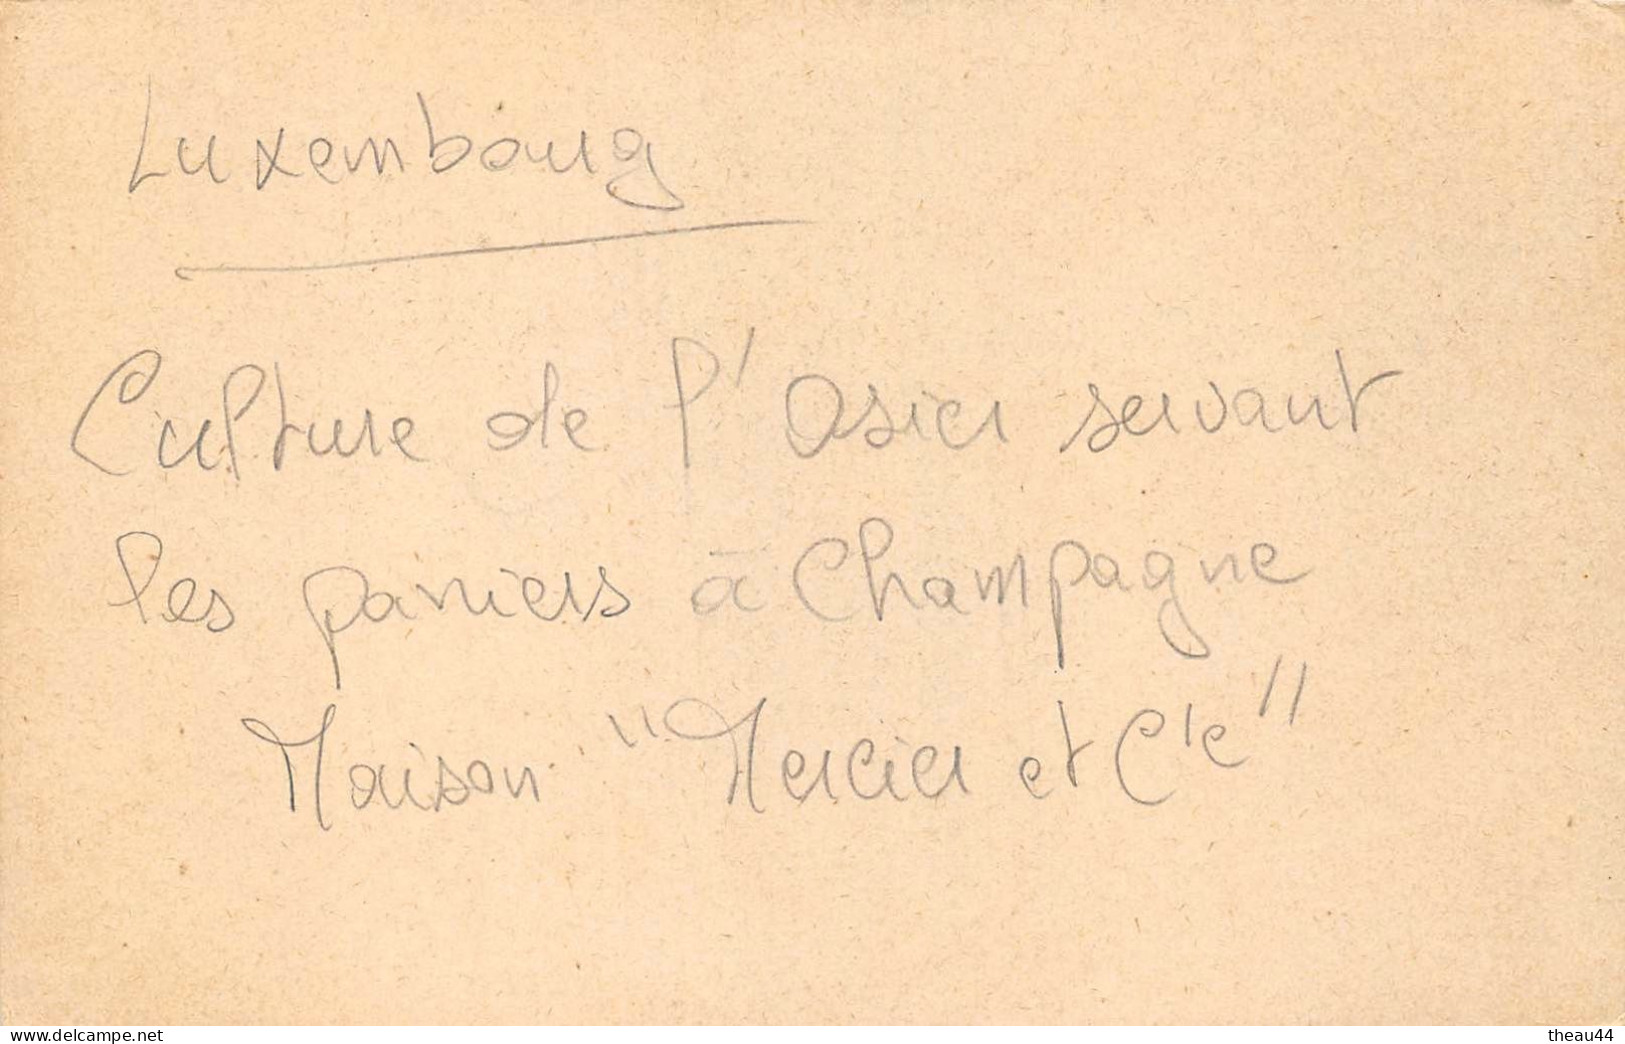 Luxembourg
Culture de l'Osier servant
les paniers à Champagne
Maison "Mercier et Cie"
www.delcampe.net
theau44